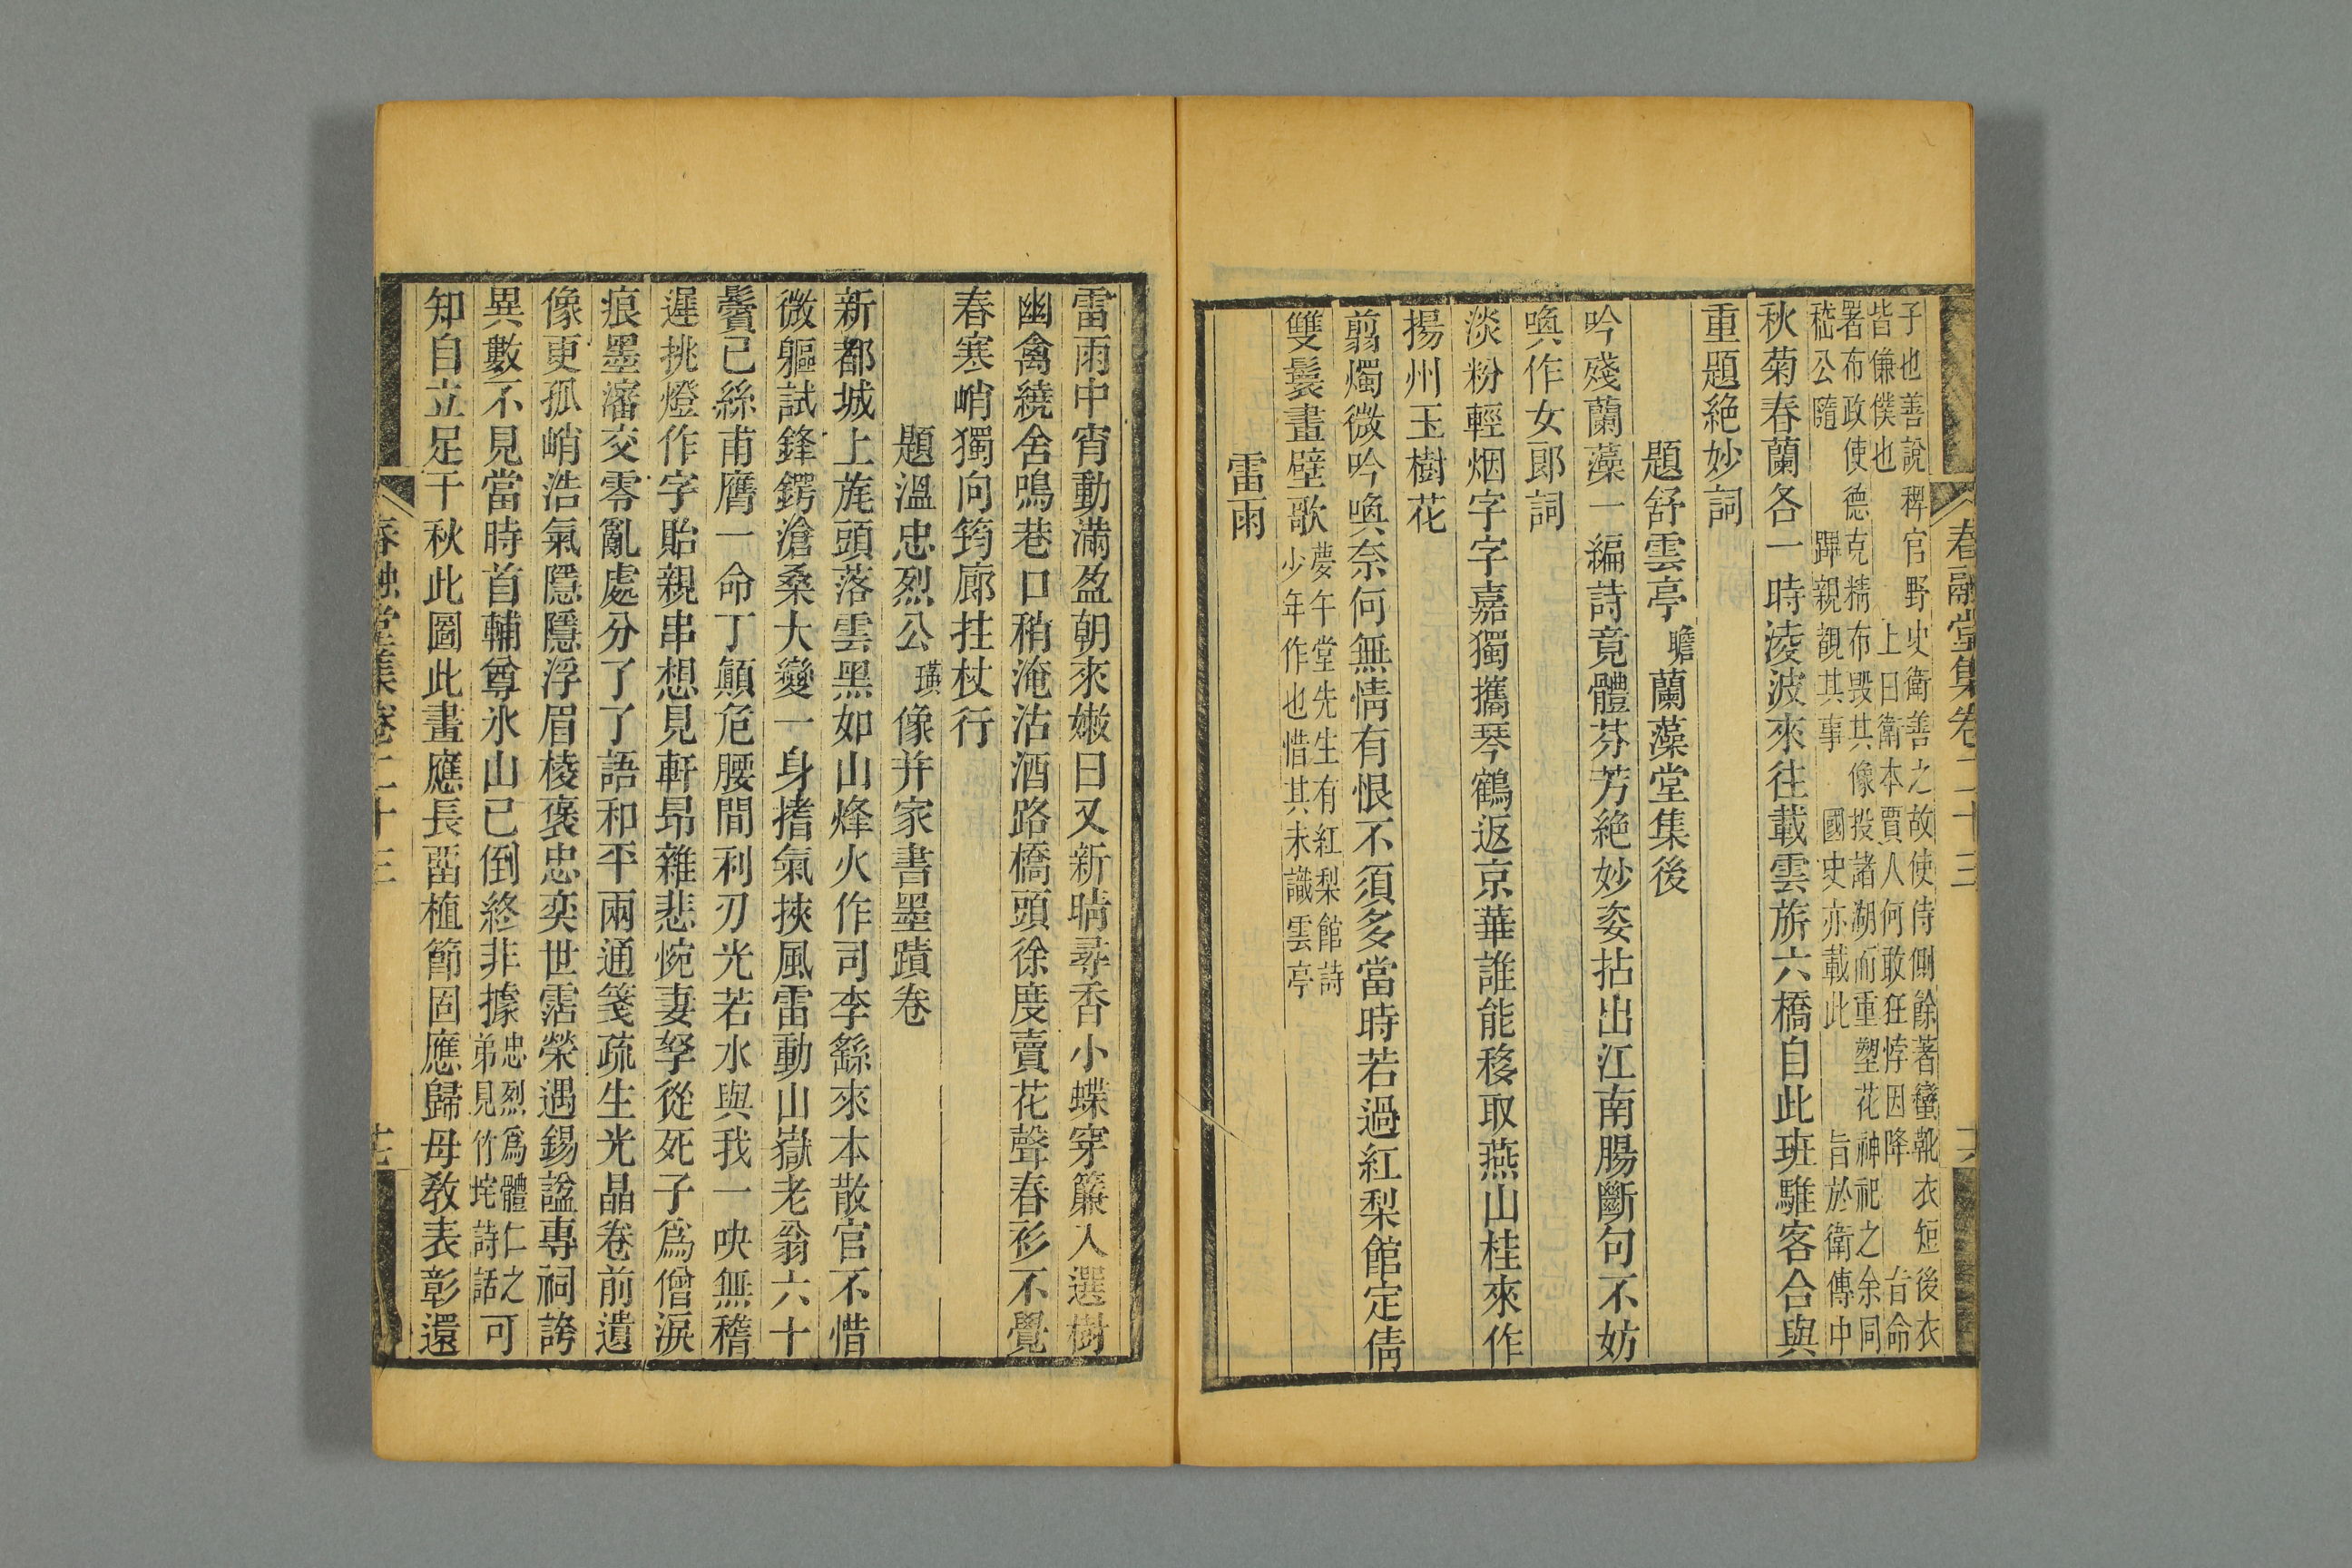 春融堂集卷二十三
子也善說稗官野史衛善之故使侍側餘著蠻靴衣短後衣
皆傔僕也上曰衛本賈人何敢狂悖因降旨命
署布政使德克精布毀其像投諸湖而重塑花神祀之余同
嵇公隨蹕親覩其事國史亦載此旨於衛傳中
秋菊春蘭各一時淩波來往載雲旂六橋自此班騅客合與
重題絶妙詞
題舒雲亭瞻蘭藻堂集後
吟殘蘭藻一編詩竟體芬芳絶妙姿拈出江南腸斷句不妨
喚作女郎詞
淡粉輕烟字字嘉獨攜琴鶴返京華誰能移取燕山桂來作
揚州玉樹花
翦燭微吟喚奈何無情有恨不須多當時若過紅梨館定倩
雙鬟畫壁歌夢午堂先生有紅梨館詩
少年作也惜其未識雲亭
雷雨
雷雨中宵動滿盈朝來嫩日又新晴尋香小蝶穿簾入選樹
幽禽繞舍鳴巷口稍淹沽酒路橋頭徐度賣花聲春衫不覺
春寒峭獨向筠廊拄杖行
題溫忠烈公璜像并家書墨蹟卷
新都城上旄頭落雲黑如山烽火作司李繇來本散官不惜
微軀試鋒鍔滄桑大變一身搘氣挾風雷動山嶽老翁六十
鬢已絲甫膺一命丁顚危腰間利刃光若水與我一吷無稽
遲挑燈作字貽親串想見軒昂雜悲惋妻孥從死子爲僧淚
痕墨瀋交零亂處分了了語和平兩通箋疏生光晶卷前遺
像更孤峭浩氣隱隱浮眉棱褒忠奕世霑榮遇錫諡專祠誇
異數不見當時首輔尊氷山已倒終非據忠烈爲體仁之
弟見竹垞詩話可
知自立足千秋此圖此畫應長畱植節固應歸母敎表彰還
春融堂集卷二十三